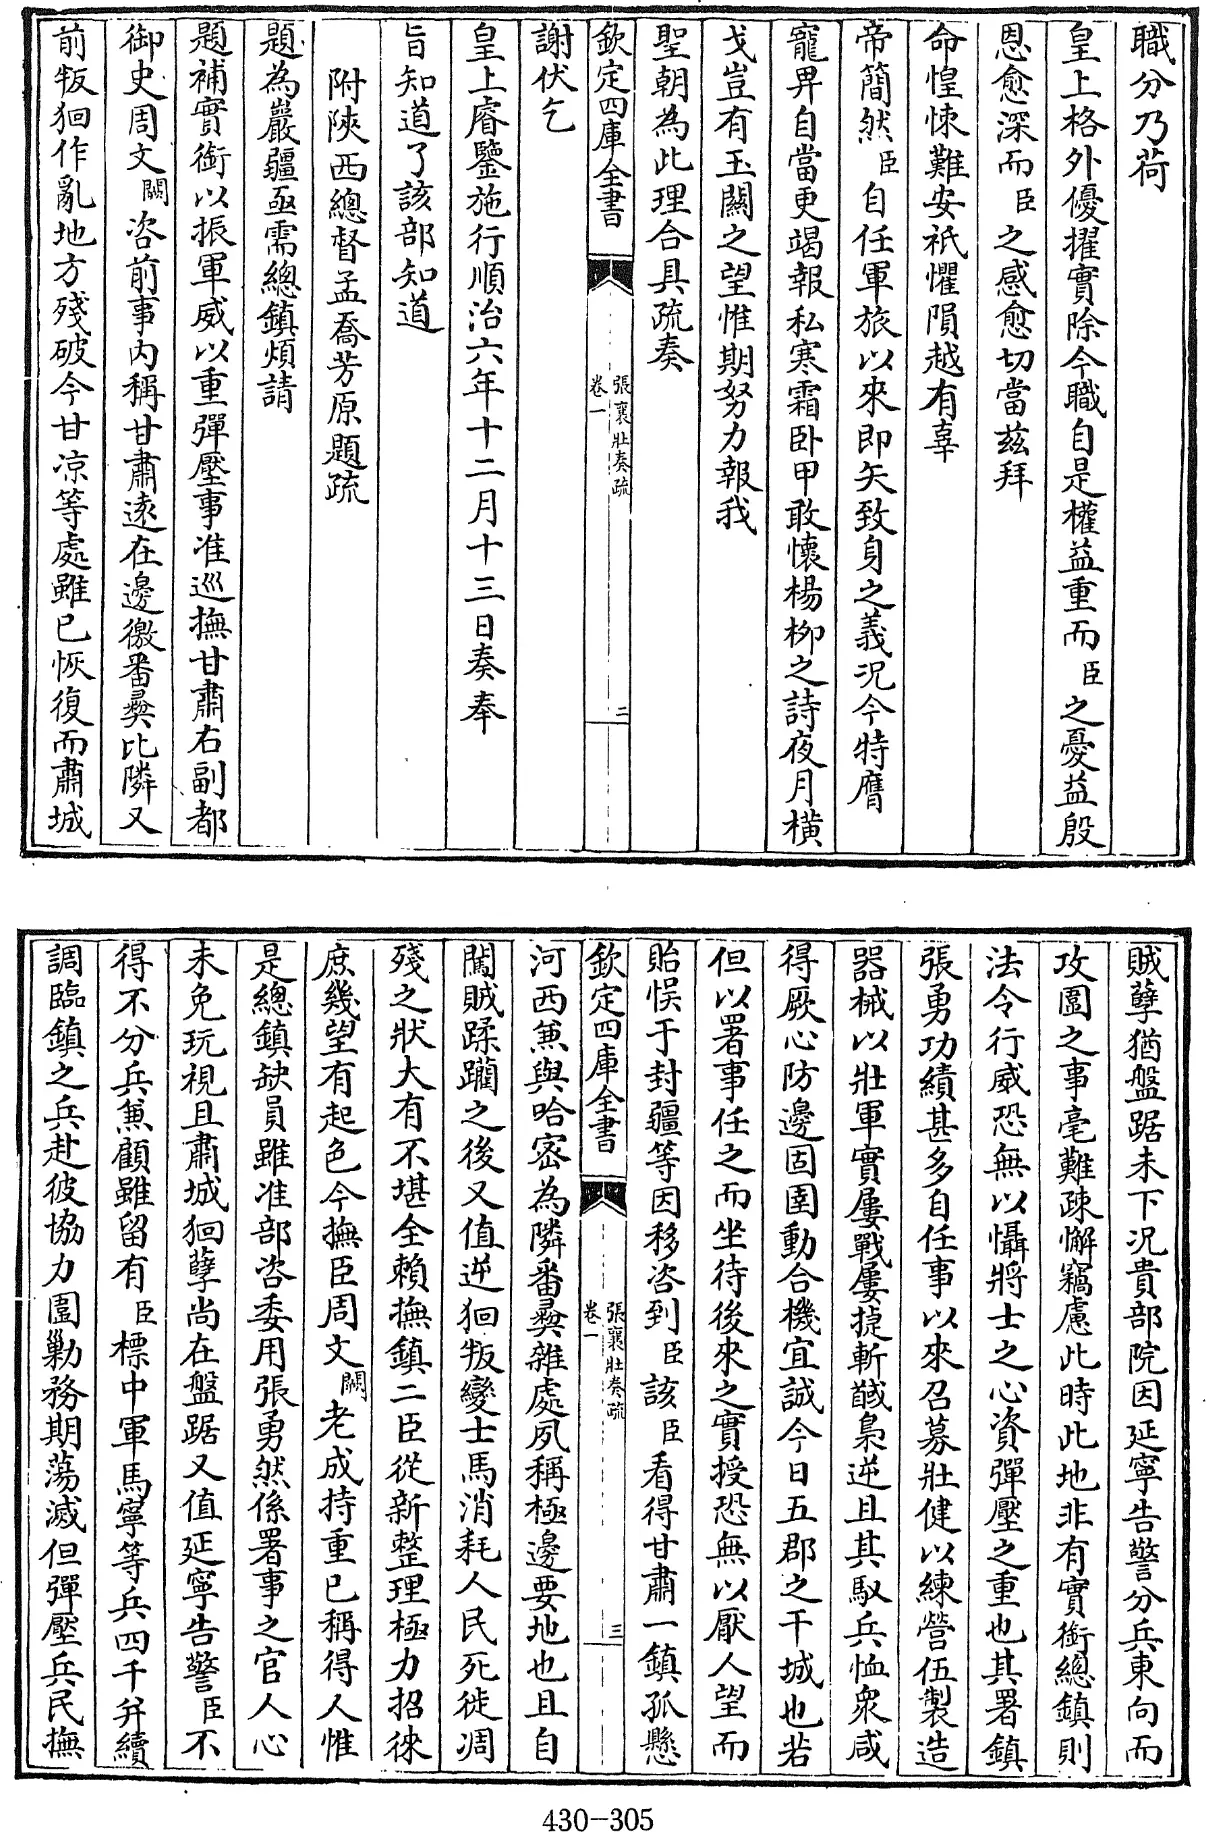 職分乃荷
皇上格外優擢實除今職自是權益重而臣之憂益殷
恩愈深而臣之感愈切當兹拜
命惶悚難安祇懼隕越有辜
帝簡然臣自任軍旅以來即矢致身之義況今特膺
寵畀自當更竭報私寒霜卧甲敢懷楊柳之詩夜月橫
戈豈有玉關之望惟期努力報我
聖朝為此理合具疏奏
欽定四庫全書 張襄壯奏疏 卷一 二
謝伏乞
皇上睿鑒施行順治六年十二月十三日奏奉
旨知道了該部知道
附陜西總督孟喬芳原題疏
題為嚴疆亟需總鎮煩請
題補實銜以振軍威以重彈壓事准巡撫甘肅右副都
御史周文闕咨前事内稱甘肅遠在邊徼番彜比隣又
前叛狥作亂地方殘破今甘凉等處雖已恢復而肅城
賊孽猶盤踞未下況貴部院因延寧告警分兵東向而
攻圍之事毫難疎懈竊慮此時此地非有實銜總鎮則
法令行威恐無以懾將士之心資彈壓之重也其署鎮
張勇功績甚多自任事以來召募壯健以練營伍製造
器械以壯軍實屢戰屢㨗斬馘梟逆且其馭兵恤衆咸
得厥心防邊固圉動合機宜誠今日五郡之干城也若
但以署事任之而坐待後來之實授恐無以厭人望而
貽悮于封疆等因移咨到臣該臣看得甘肅一鎮孤懸
欽定四庫全書 張襄壯奏疏 卷一 三
河西兼與哈宻為隣番彜雜處夙稱極邊要地也且自
闖賊蹂躪之後又值逆狥叛變士馬消耗人民死徙凋
殘之狀大有不堪全賴撫鎮二臣從新整理極力招徠
庶幾望有起色今撫臣周文闕老成持重已稱得人惟
是總鎮缺員雖准部咨委用張勇然係署事之官人心
未免玩視且肅城狥孽尚在盤踞又值延寧告警臣不
得不分兵兼顧雖留有臣標中軍馬寧等兵四千并續
調臨鎮之兵赴彼協力圍勦務期蕩滅但彈壓兵民撫
430-305